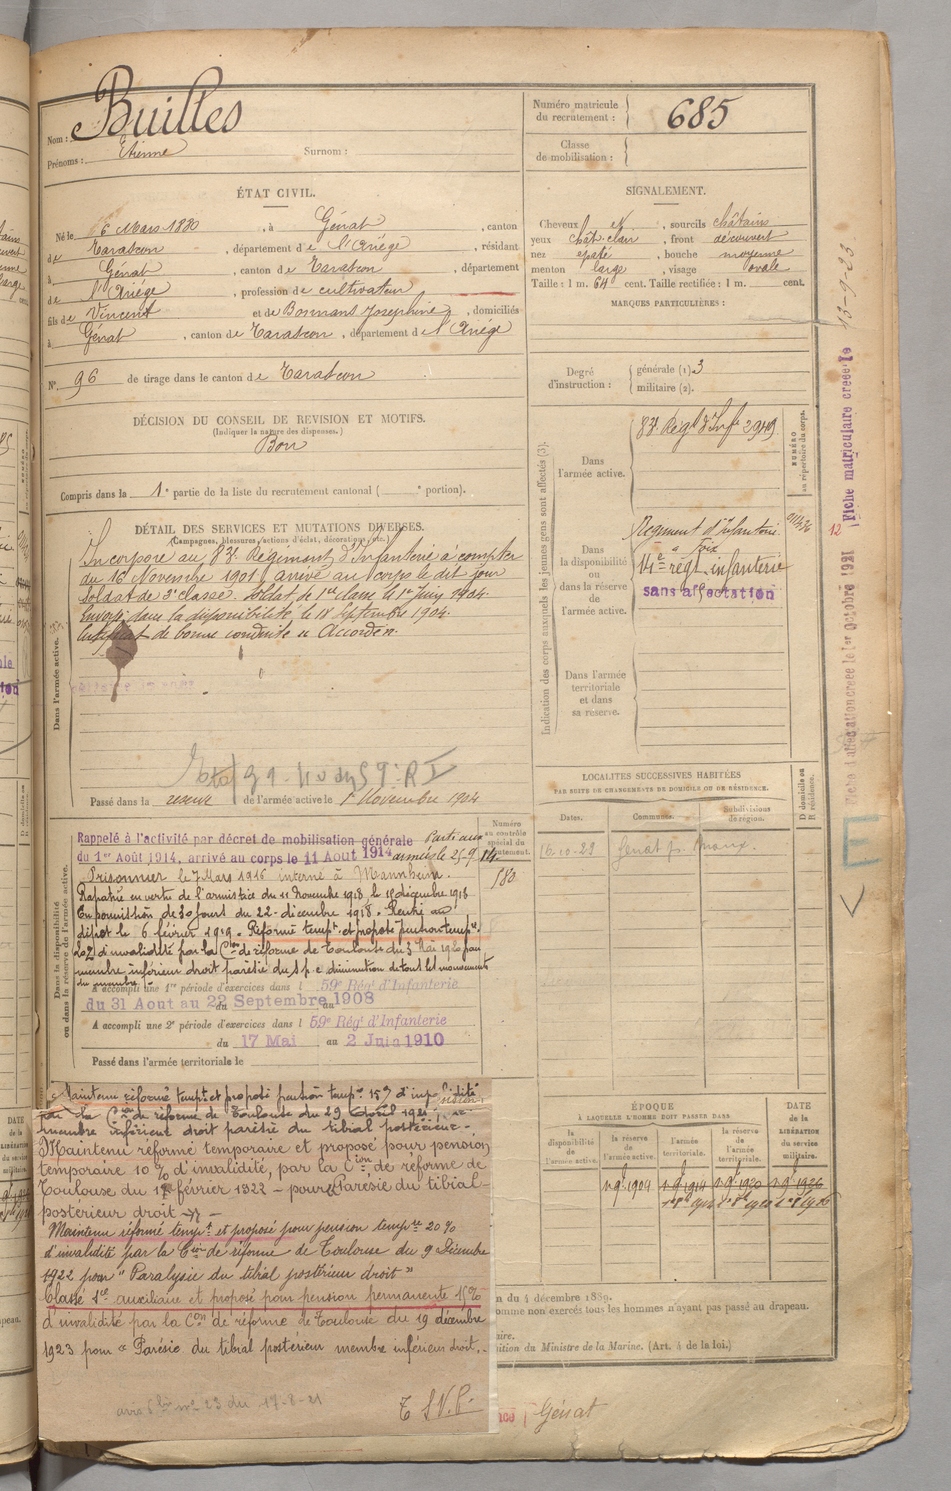 Nom : Builles
Prénoms : Etienne Surnom :
Numéro matricule du recrutement : 685
Classe de mobilisation :
ÉTAT CIVIL.
Né le 6 Mars 1880, à Génat, canton
de Tarascon, département de l'Ariège, résidant
à Génat, canton de Tarascon, département
de l'Ariège, profession de cultivateur
fils de Vincent et de Bosmans Joséphine, domiciliés
à Génat, canton de Tarascon, département de l'Ariège
N° 96 de tirage dans le canton de Tarascon
DÉCISION DU CONSEIL DE REVISION ET MOTIFS.
(Indiquer la nature des dispenses.)
Bon
Compris dans la 1e partie de la liste du recrutement cantonal ( e portion).
SIGNALEMENT.
Cheveux et, sourcils châtains
yeux chât. clair, front découvert
nez épaté, bouche moyenne
menton large, visage ovale
Taille : 1 m. 64 cent. Taille rectifiée : 1 m. cent.
MARQUES PARTICULIÈRES :
Degré d'instruction : générale (1) 3
militaire (2).
DÉTAIL DES SERVICES ET MUTATIONS DIVERSES.
(Campagnes, blessures, actions d'éclat, décorations, etc.)
Dans l'armée active.
Incorporé au 83e Régiment d'Infanterie à compter
du 16 Novembre 1901, arrivé au corps le dit jour
soldat de 2e classe. Soldat de 1re classe le 1er Juin 1904.
Envoyé dans la disponibilité le 18 Septembre 1904.
Certificat de bonne conduite "Accordé".
Passé dans la réserve de l'armée active le 1er Novembre 1904
Indication des corps auxquels les jeunes gens sont affectés (3).
Dans l'armée active.
83e Régt d'Infie 2949
NUMÉRO au répertoire du corps.
Dans la disponibilité ou dans la réserve de l'armée active.
Régiment d'Infanterie
à Foix
régt infanterie
sans affectation
Dans l'armée territoriale et dans sa réserve.
12
Fiche matriculaire créée le 13-9-23
Fiche d'affectation créée le 1er Octobre 1921
LOCALITÉS SUCCESSIVES HABITÉES
PAR SUITE DE CHANGEMENTS DE DOMICILE OU DE RÉSIDENCE.
Dates. Communes. Subdivisions de région. D domicile ou R résidence.
16-10-23 Génat
E
Dans la disponibilité ou dans la réserve de l'armée active.
Numéro au contrôle spécial du recrutement.
580
Rappelé à l'activité par décret de mobilisation générale Parti aux
du 1er Août 1914, arrivé au corps le 11 Août 1914 armées le 25-9 14.
Prisonnier le 7 Mars 1916 interné à Mannheim.
Rapatrié en vertu de l'armistice du 11 Novembre 1918 le 18 décembre 1918
En permission de 30 jours du 22 décembre 1918. Rentré au
dépôt le 6 février 1919. Réformé tempre et proposé pension tempre
20% d'invalidité par la Cion de réforme de Toulouse du 3 Mai 1920 pour
membre inférieur droit parésie du s.p.e diminution de tous les mouvements
du membre.
A accompli une 1re période d'exercices dans le 59e Régt d'Infanterie
du 31 Aout au 22 Septembre 1908
A accompli une 2e période d'exercices dans le 59e Régt d'Infanterie
du 17 Mai au 2 Juin 1910
Passé dans l'armée territoriale le
Maintenu réformé tempre et proposé pension tempre 15% d'invalidité
par la Cion de réforme de Toulouse du 29 Avril 1921,
membre inférieur droit parésie du tibial postérieur.
Maintenu réformé temporaire et proposé pour pension
temporaire 10% d'invalidité, par la Cion de réforme de
Toulouse du février 1922 - pour Parésie du tibial
postérieur droit
Maintenu réformé tempre et proposé pour pension tempre 20%
d'invalidité par la Cion de réforme de Toulouse du 9 Décembre
1922 pour "Paralysie du tibial postérieur droit"
Classé sce auxiliaire et proposé pour pension permanente 15%
d'invalidité par la Con de réforme de Toulouse du 19 décembre
1923 pour "Parésie du tibial postérieur membre inférieur droit.
23 du 17-8-21
T.S.V.P.
ÉPOQUE
À LAQUELLE L'HOMME DOIT PASSER DANS
la disponibilité de l'armée active.
la réserve de l'armée active.
l'armée territoriale.
la réserve de l'armée territoriale.
DATE de la LIBÉRATION du service militaire.
1 9e 1904 1 9e 1914 1 9e 1920 1 9e 1926
n du 4 décembre 1889.
omme non exercés tous les hommes n'ayant pas passé au drapeau.
aire.
ition du Ministre de la Marine. (Art. 4 de la loi.)
Génat